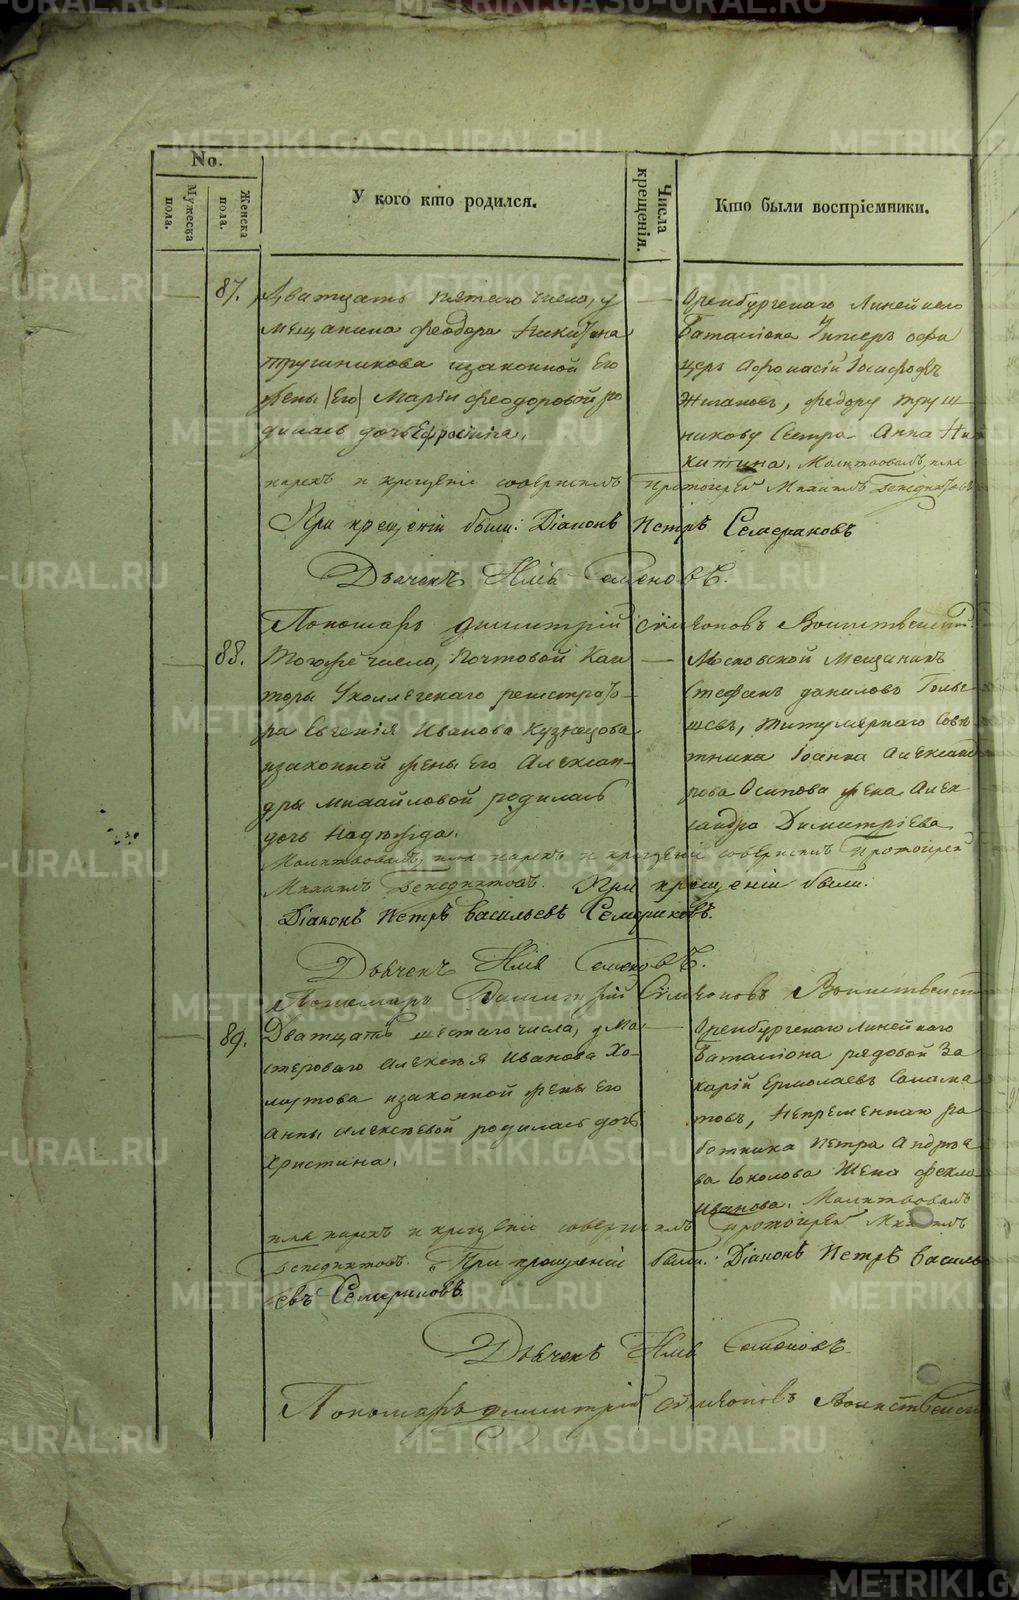 METRIKI.GASO-URAL.RU
No.
Мужеска пола.
Женска пола.
У кого кто родился.
Числа крещенія.
Кто были воспріемники.
87.
Дватцать пятаго числа, у
мещанина Феодора Никитина
Трушникова изаконной Его
жены |Его| Маріи Феодоровой ро
дилась дочь Ефросинія,
Оренбургскаго Линейнаго
Баталіона Унтеръ офи
церъ Афонасій Іосифовъ
Жигановъ, Федору Труш
никову Сестра Анна Ни
китина. Молитвовалъ, имя
нарекъ и крещеніе совершилъ Протоіерей Михаилъ Бенедиктовъ
При крещеніи были: Діаконъ Петръ Семериковъ
Дьячекъ Илія Семеновъ.
Пономарь Димитрій Симеоновъ
88.
Тогоже числа, Почтовой Кан
торы Уколлежскаго регистрато-
ра Евгенія Иванова Кузнецова
изаконной жены Его Алексан-
дры Михайловой родилась
дочь Надежда.
Московской Мещанинъ
Стефанъ Даниловъ
титулярнаго Совѣ
тника Іоанна Александ
рова Осипова жена Алек
сандра Димитріева
Молитвовалъ, имя нарекъ и крещеніе совершилъ Протоіерей
Михаилъ Бенедиктовъ. При крещеніи были:
Діаконъ Петръ Васильевъ Семериковъ.
Дьячекъ Илія Семеновъ.
Пономарь Димитрій Симеоновъ
89.
Дватцать шестаго числа, у Ма-
стероваго Алексѣя Иванова Хо-
изаконной жены Его
Анны Алексѣевой родилась дочь
Христина.
Оренбургскаго Линейнаго
Баталіона рядовой За
харій Ермолаевъ Салама
товъ, Непременнаго ра
ботника Петра Андрѣе
ва Соколова Жена Фекла
Иванова. Молитвовалъ
имя нарекъ и крещеніе совершилъ протоіерей Михаилъ
Бенедиктовъ. При крещеніи были: Діаконъ Петръ Василь
евъ Семериковъ
Дьячекъ Илія Семеновъ.
Пономарь Димитрій Симеоновъ